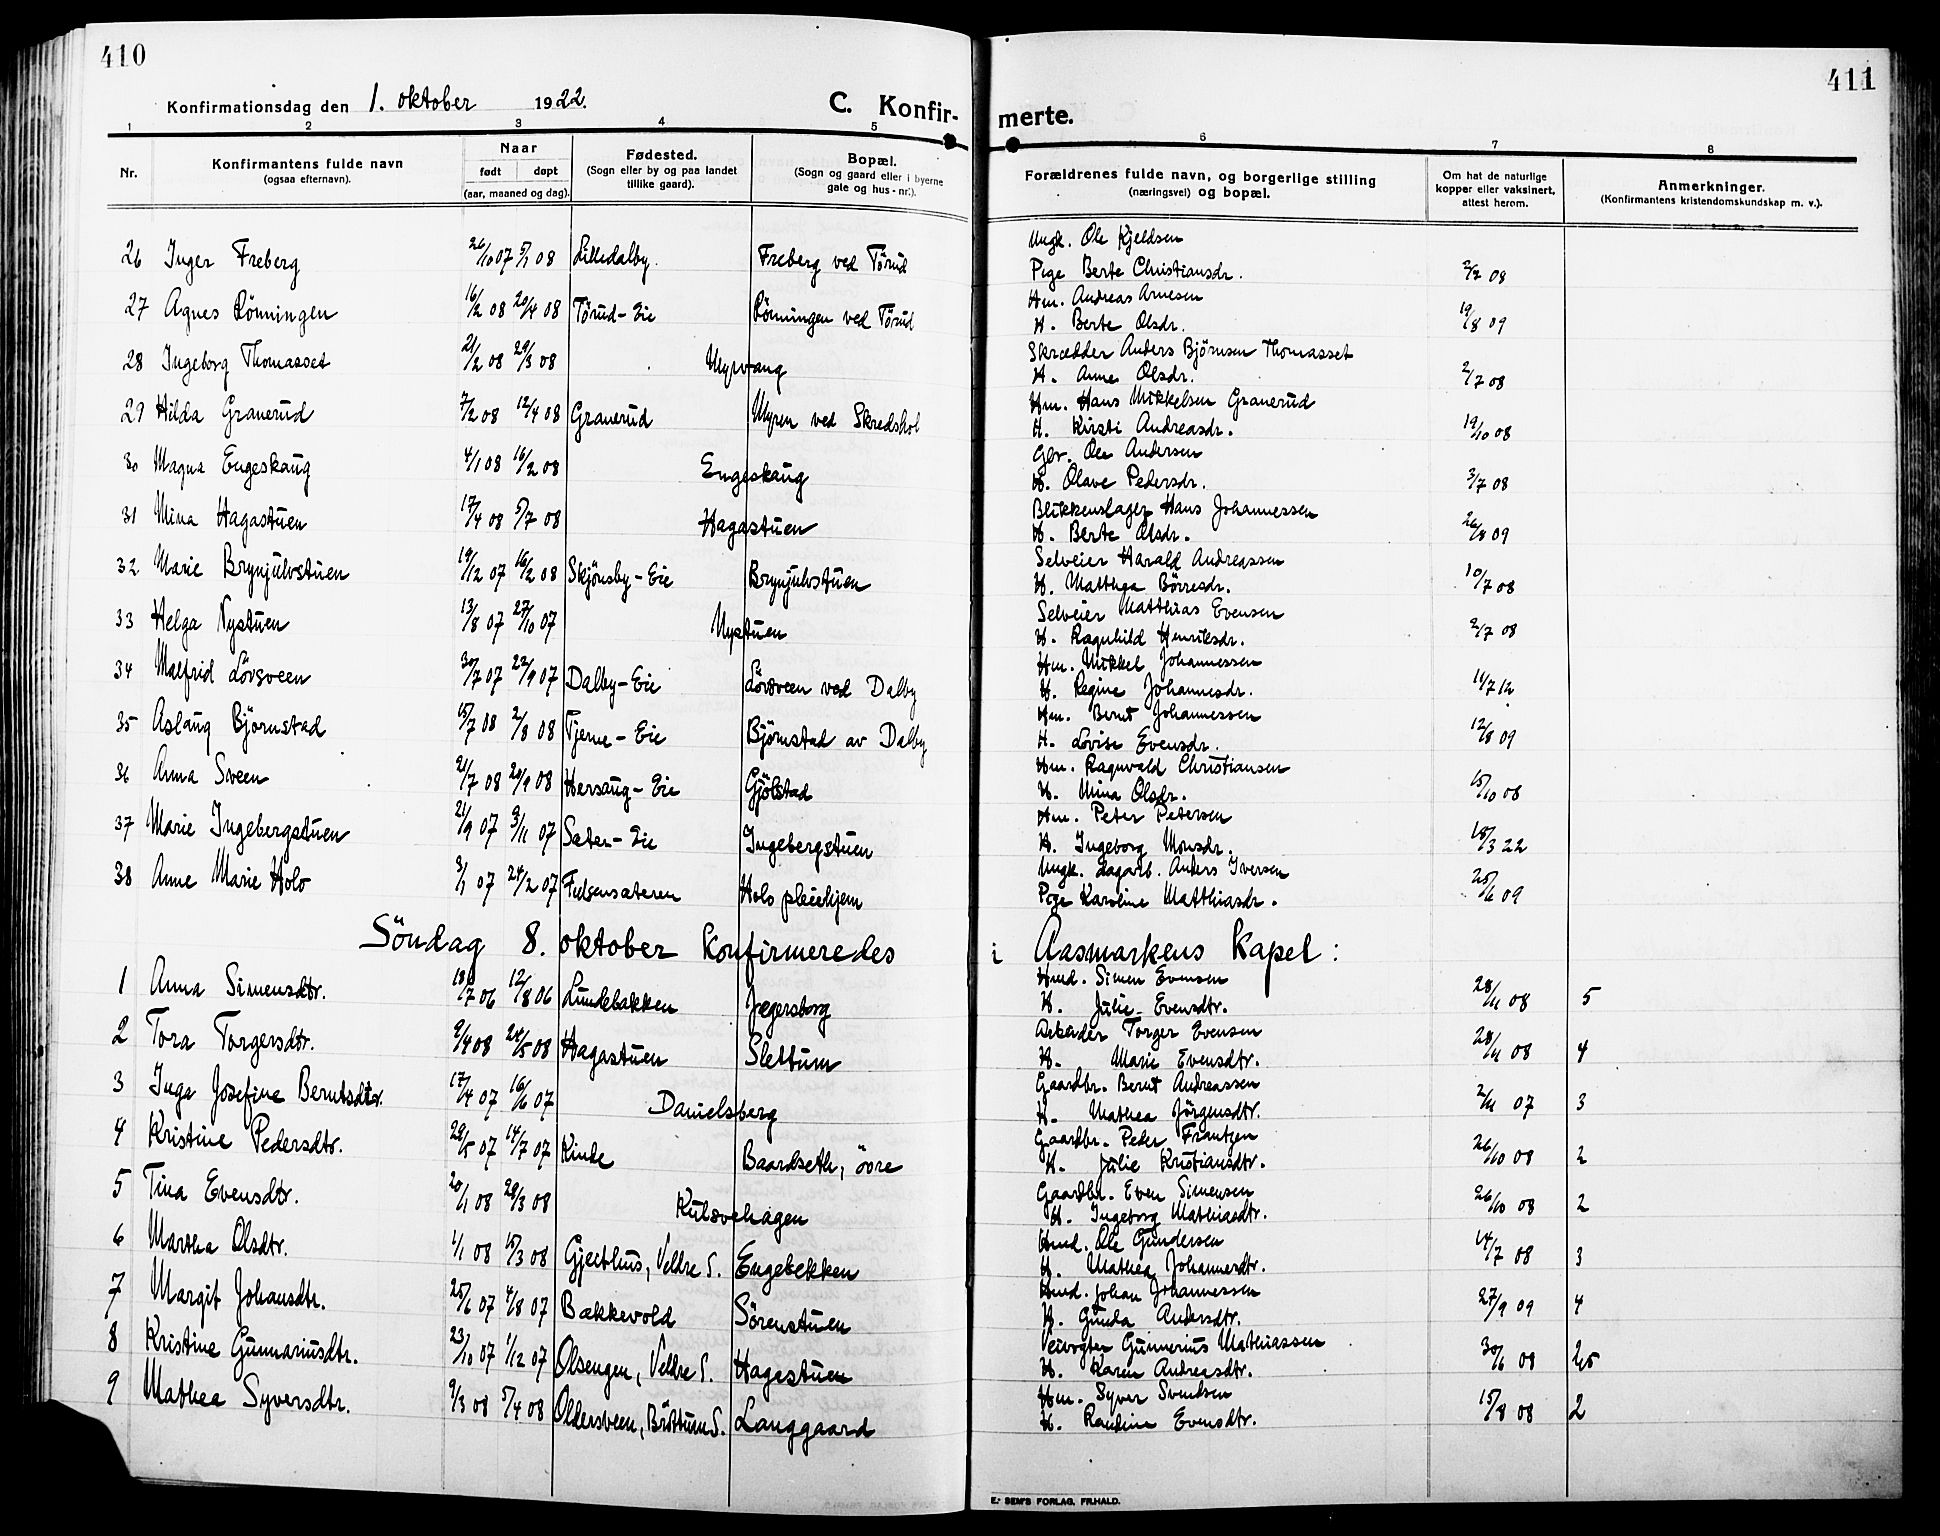 410
Konfirmationsdag den 1. oktober 1922.
C. Konfir-
1 2 3 4 5
Nr.
Konfirmantens fulde navn
(ogsaa efternavn).
Naar
født døpt
(aar, maaned og dag).
Fødested.
(Sogn eller by og paa landet
tillike gaard).
Bopæl.
(Sogn og gaard eller i byerne
gate og hus-nr.).
26 Inger Freberg 26/10 07 5/1 08 Lilledalby. Freberg ved Törud
27 Agnes Rönningen 16/2 08 20/4 08 Törud-Eie Rönningen ved Törud
28 Ingeborg Thomasset 21/2 08 29/3 08 Myrvang
29 Hilda Granerud 7/2 08 12/4 08 Granerud Myren ved Skredshol
30 Magna Engeskaug 4/1 08 16/2 08 Engeskaug
31 Mina Hagastuen 17/4 08 5/7 08 Hagastuen
32 Marie Brynjulvstuen 19/12 07 16/2 08 Skjönsby-Eie Brynjulvstuen
33 Helga Nystuen 13/8 07 27/10 07 Nystuen
34 Malfrid Lövsveen 30/7 07 22/9 07 Dalby-Eie Lövsveen ved Dalby
35 Aslaug Björnstad 15/7 08 2/8 08 Tjerne-Eie Björnstad av Dalby
36 Anna Sveen 21/7 08 20/9 08 Hersaug-Eie Gjölstad
37 Marie Ingebergstuen 21/9 07 3/11 07 Sater-Eie Ingebergstuen
38 Anne Marie Holo 3/1 07 24/2 07 Fulsensæteren Holo pleiehjem
Söndag 8. oktober konfirmeredes
1 Anna Simensdtr. 18/7 06 12/8 06 Lundebakken Jægersborg
2 Tora Torgersdtr. 9/4 08 24/5 08 Hagastuen Slettum
3 Inga Josefine Berntsdtr. 17/4 07 16/6 07 Danielsberg
4 Kristine Pedersdtr. 22/5 07 14/7 07 Kinde Baardseth, övre
5 Tina Evensdtr. 20/1 08 28/3 08 Kulsvehagen
6 Martha Olsdtr. 1/1 08 15/3 08 Gjeithus, Veldre S. Engebekken
7 Margit Johansdtr. 25/6 07 4/8 07 Bækkevold Sörenstuen
8 Kristine Gunnariusdtr. 23/10 07 1/12 07 Olsengen, Veldre S. Hagestuen
9 Mathea Syversdtr. 9/3 08 5/4 08 Oldersveen, Bröttum S. Langgaard
411
merte.
6 7 8
Forældrenes fulde navn, og borgerlige stilling
(næringsvei) og bopæl.
Om hat de naturlige
kopper eller vaksinert,
attest herom.
Anmerkninger.
(Konfirmantens kristendomskundskap m. v.).
Ungk. Ole Kjeldsen
Pige Berte Christiansdr. 2/7 08
Hm. Andreas Arnesen
H. Berte Olsdr. 19/8 09
Skrædder Anders Björnsen Thomasset
H. Anne Olsdr. 2/7 08
Hm. Hans Mikkelsen Granerud
H. Kirsti Andreasdr. 19/10 08
Gbr. Ole Andersen
H. Olave Pedersdr. 3/7 08
Blikkenslager Hans Johannessen
H. Berte Olsdr. 26/8 09
Selveier Harald Andreassen
H. Matthea Börresdr. 10/7 08
Selveier Matthias Evensen
H. Ragnhild Henriksdr. 2/7 08
Hm. Mikkel Johannessen
H. Regine Johannesdr. 11/7 12
Hm. Bernt Johannessen
H. Lovise Evensdr. 12/8 09
Hm. Ragnvald Christiansen
H. Mina Olsdr. 15/10 08
Hm. Peter Petersen
H. Ingeborg Monsdr. 18/3 22
Ungk. Dagarb. Anders Iversen
Pige Karoline Matthiasdr. 25/6 09
i Aasmarkens Kapel:
Hmd. Simen Evensen
H. Julie Evensdtr. 28/11 08 5
Arbeider Torger Evensen
H. Marie Evensdtr. 28/11 08 4
Gaardbr. Bernt Andreassen
H. Mathea Jörgensdtr. 2/11 07 3
Gaardbr. Peder Frantzen
H. Julie Kristiansdtr. 26/10 08 2
Gaardbr. Even Simensen
H. Ingeborg Mathiasdtr. 26/10 08 2
Hmd. Ole Gundersen
H. Mathea Johannesdtr. 14/7 08 3
Hmd. Johan Johannessen
H. Gunda Andersdtr. 27/9 09 4
Veivogter Gunnerius Mathiassen
H. Karen Andreasdtr. 30/6 08 2,5
Hm. Syver Svendsen
H. Pauline Evensdtr. 15/8 08 2
E. SEM'S FORLAG, FR.HALD.